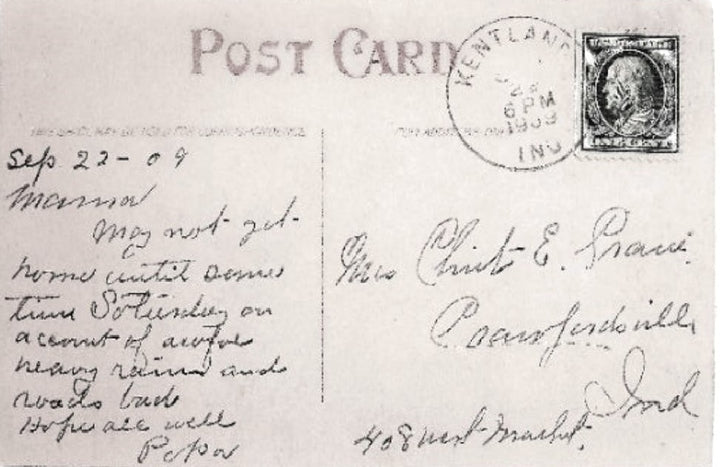 POST CARD
KENTLAND
22
6 PM
1909
IND
THIS SPACE MAY BE USED FOR CORRESPONDENCE
Sep. 22-09
Mama
May not get
home until some
time Saturday on
account of awful
heavy rains and
roads bad
Hope all well
Papa
Mrs E.
Crawfordsville
Ind
408 West Market